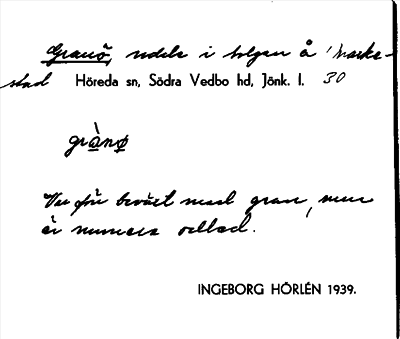 Granö, udde i sjögen å Marke-
stad Höreda sn, Södra Vedbo hd, Jönk. l. 30
grànø
Var förr beväxt med gran, men
är numera odlad.
INGEBORG HÖRLÉN 1939.